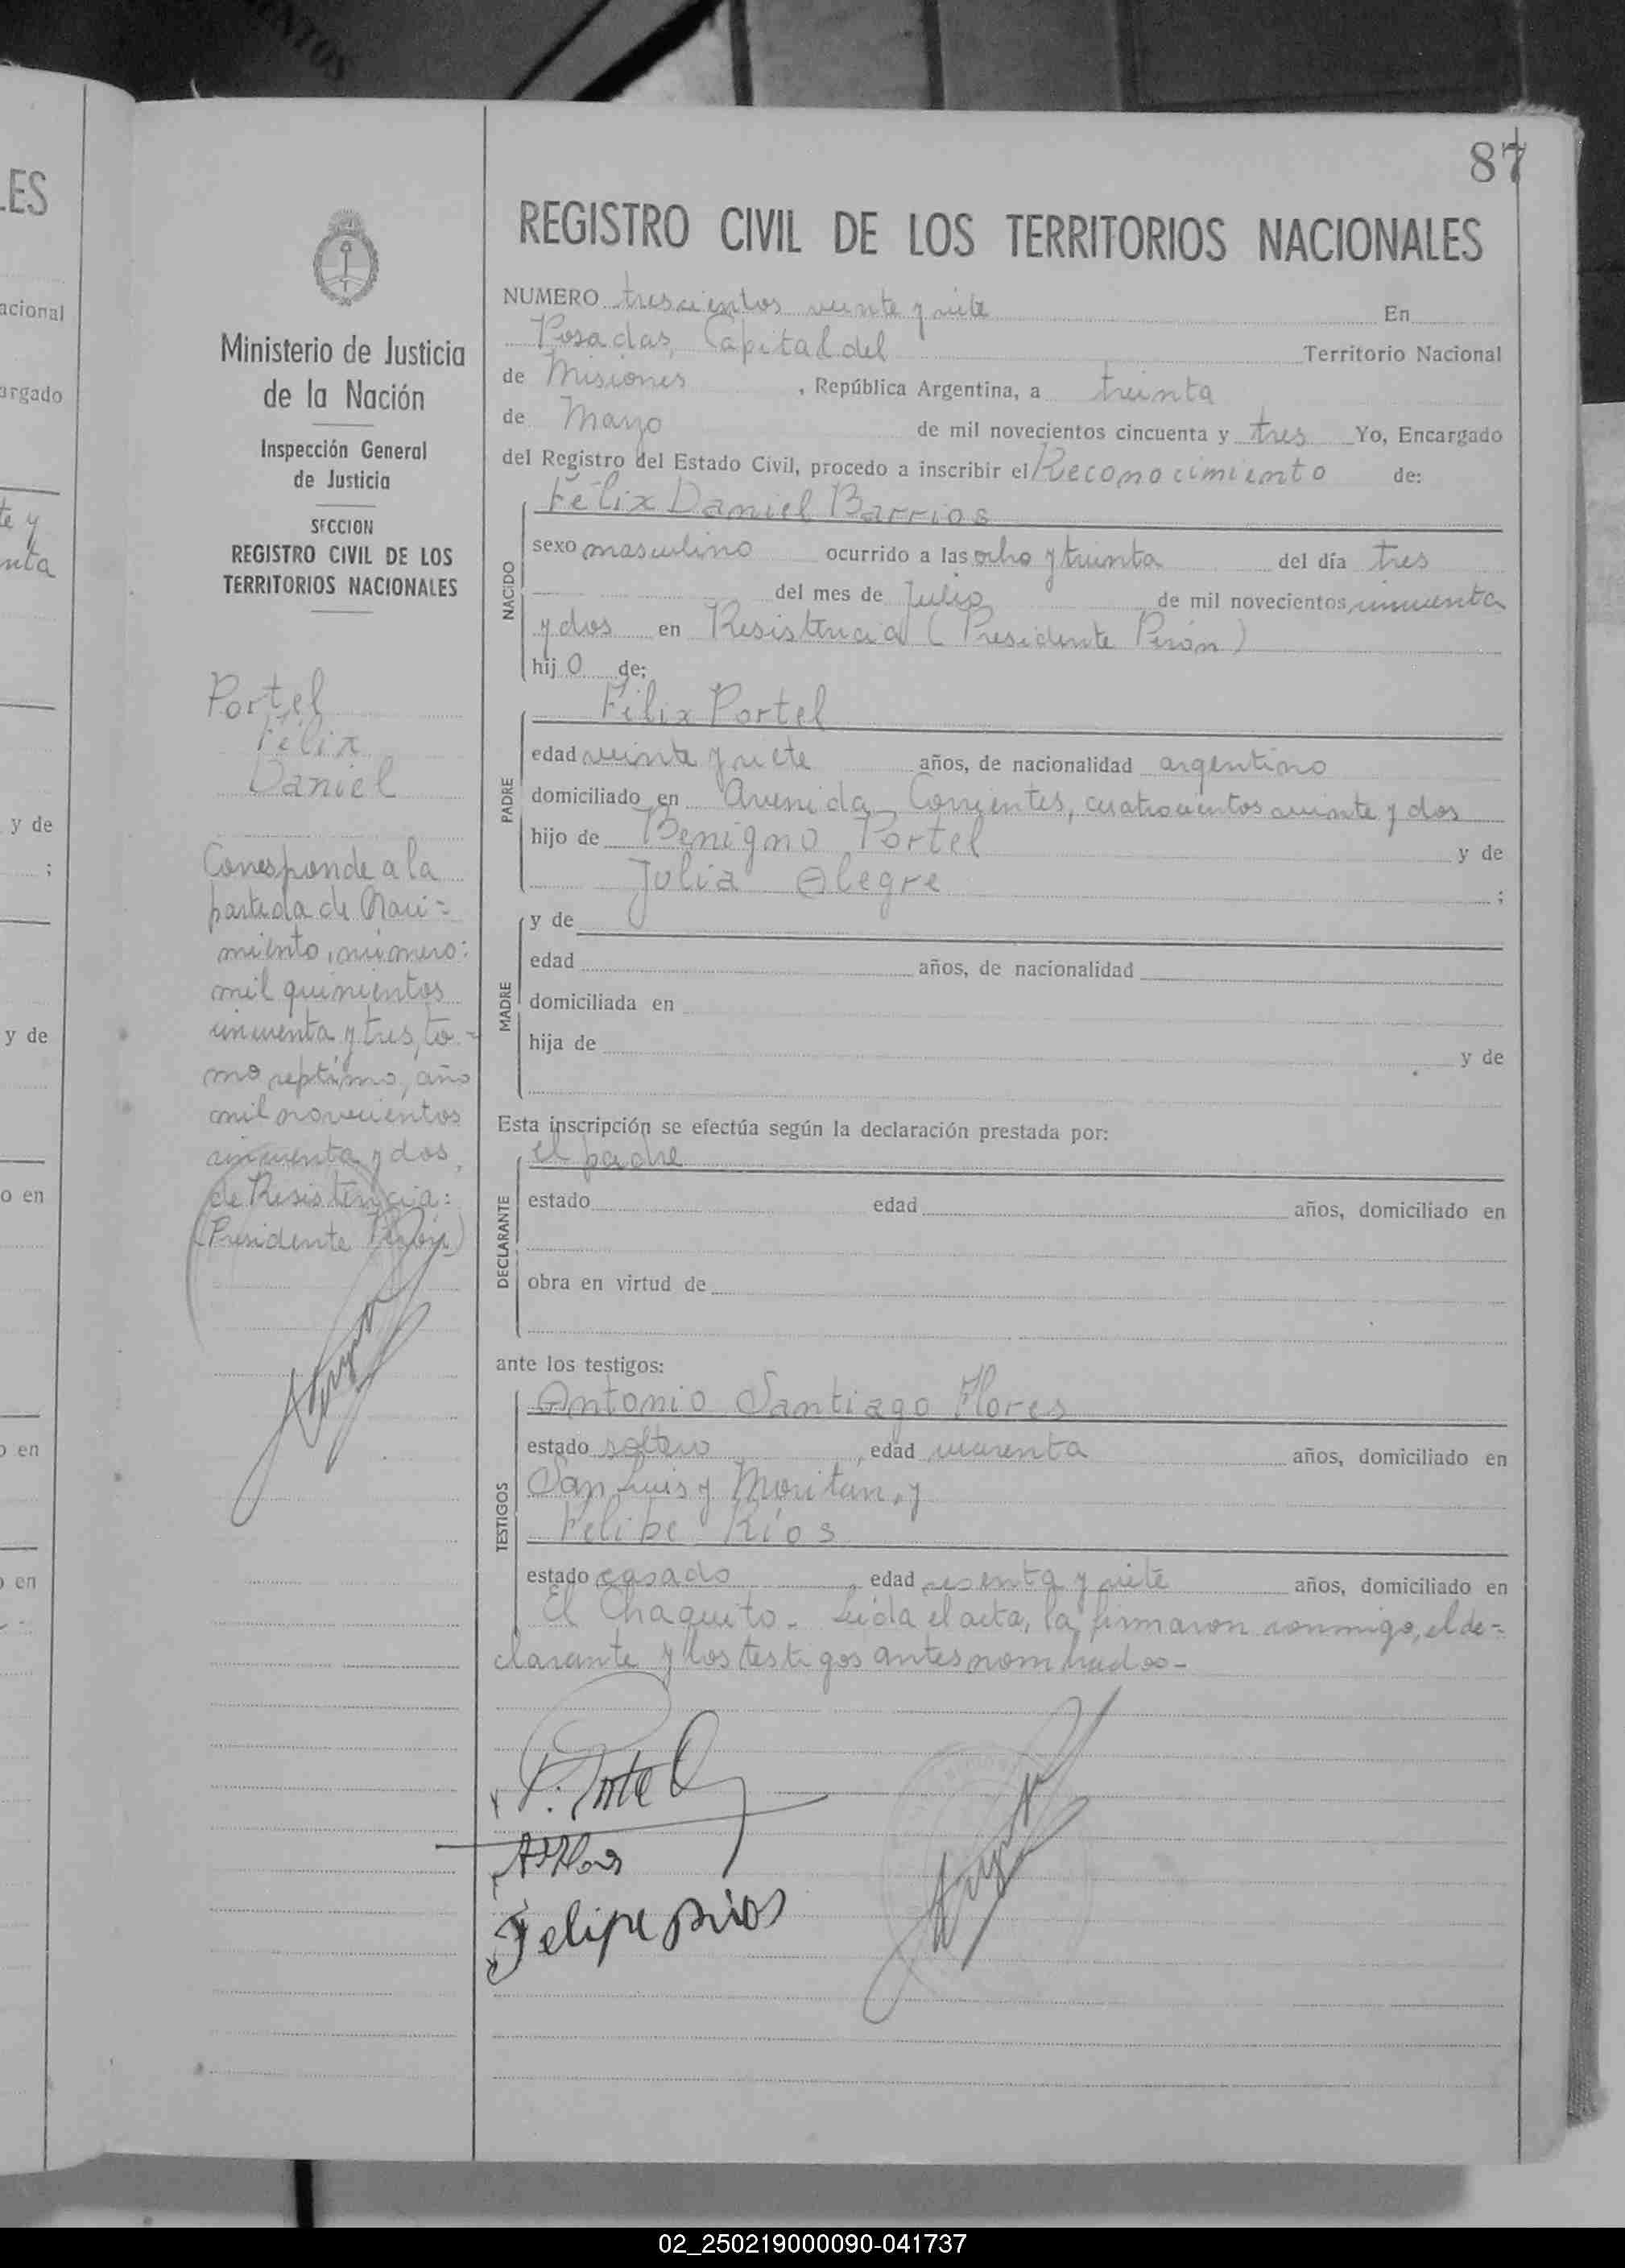 87
REGISTRO CIVIL DE LOS TERRITORIOS NACIONALES
NUMERO trescientos veinte y siete En
Posadas, Capital del Territorio Nacional
de Misiones, República Argentina, a treinta
de Mayo de mil novecientos cincuenta y tres Yo, Encargado
del Registro del Estado Civil, procedo a inscribir el Reconocimiento de:
Félix Daniel Barrios
NACIDO
sexo masculino ocurrido a las ocho y treinta del día tres
del mes de Julio de mil novecientos cincuenta
y dos en Resistencia (Presidente Perón)
hijo de:
Félix Portel
PADRE
edad veinte y siete años, de nacionalidad argentino
domiciliado en Avenida Corrientes, cuatrocientos veinte y dos
hijo de Benigno Portel y de
Julia Alegre ;
MADRE
y de
edad años, de nacionalidad
domiciliada en
hija de y de
Esta inscripción se efectúa según la declaración prestada por:
el padre
DECLARANTE
estado edad años, domiciliado en
obra en virtud de
ante los testigos:
Antonio Santiago Flores
TESTIGOS
estado soltero, edad cuarenta años, domiciliado en
San Luis y Moritan, y
Felipe Ríos
estado casado, edad sesenta y siete años, domiciliado en
El Chaquito. Leída el acta, la firmaron conmigo, el de=
clarante y los testigos antes nombrados-
F. Portel
AS Flores
Felipe Rios
Ministerio de Justicia
de la Nación
Inspección General
de Justicia
SECCION
REGISTRO CIVIL DE LOS
TERRITORIOS NACIONALES
Portel
Félix
Daniel
Corresponde a la
partida de Naci=
miento, número:
mil quinientos
cincuenta y tres, to-
mo septimo, año
mil novecientos
cincuenta y dos,
de Resistencia:
(Presidente Perón)
LES
acional
argado
te y
nta
y de
;
y de
o en
o en
o en
02_250219000090-041737